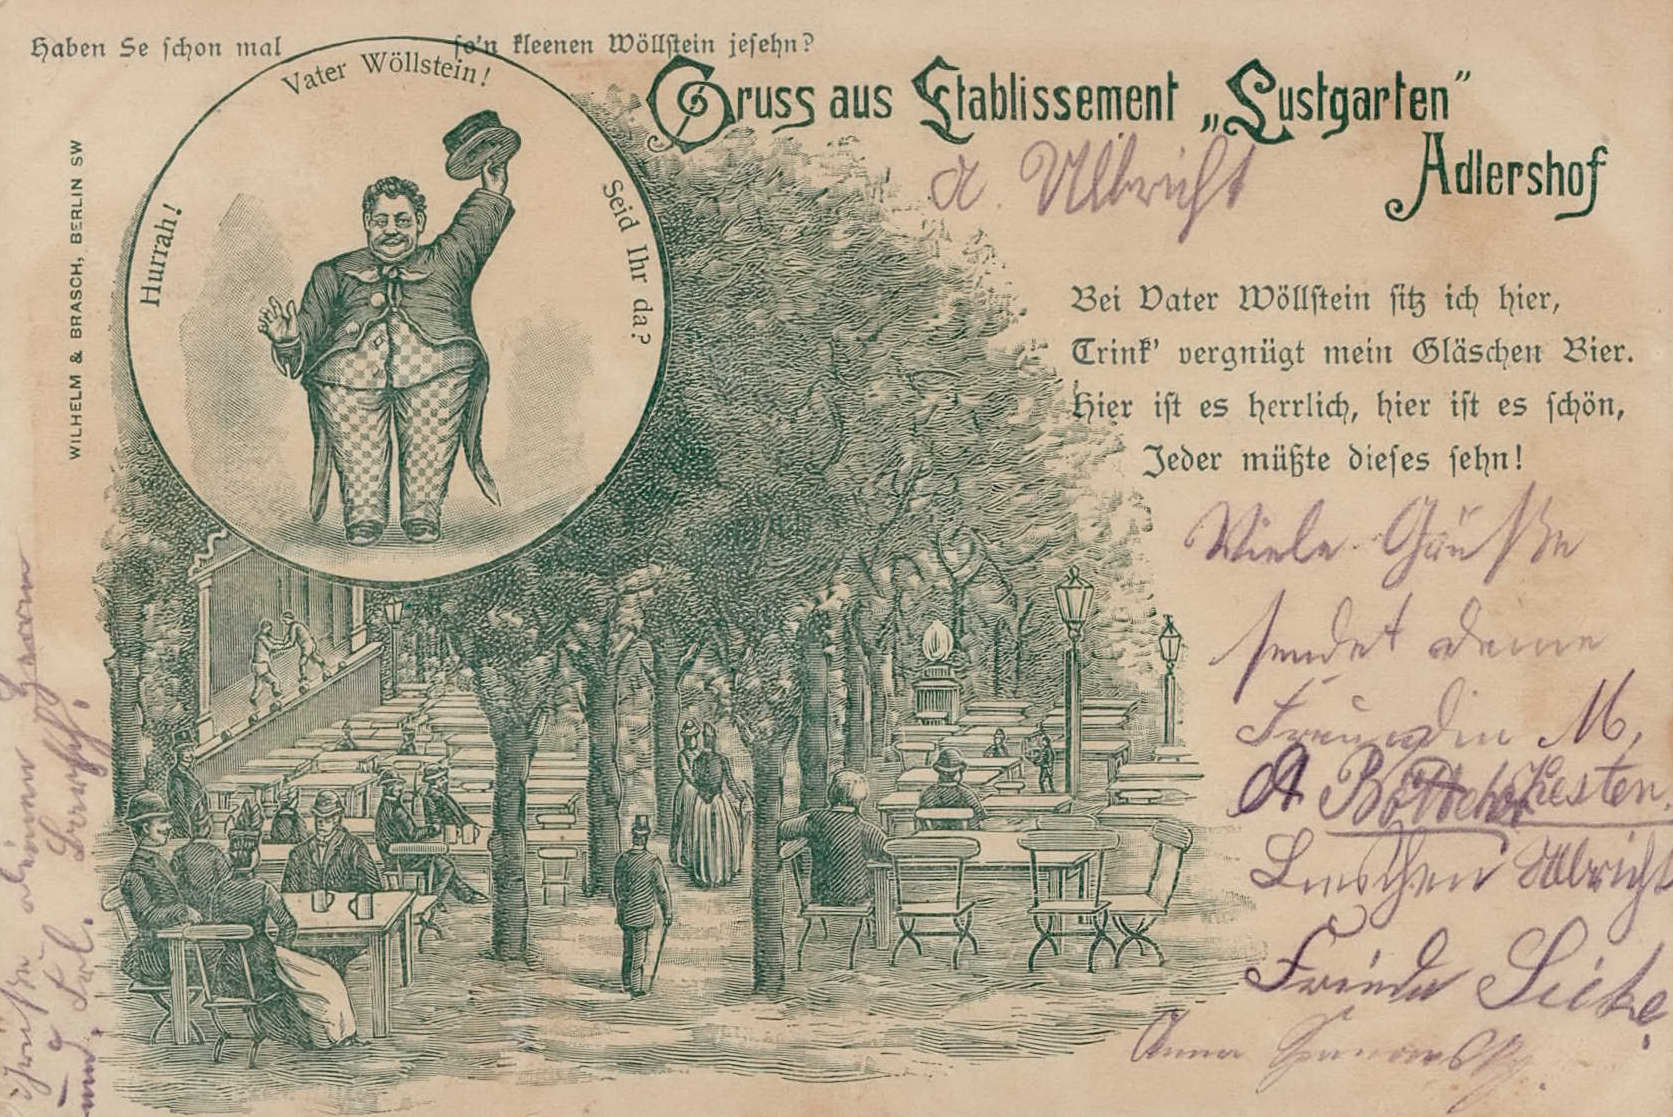 Haben Se schon mal so'n kleenen Wöllstein jesehn?
Hurrah! Vater Wöllstein! Seid Ihr da?
Gruss aus Etablissement „Lustgarten"
Adlershof
A. Ulbricht
WILHELM & BRASCH, BERLIN SW
Bei Vater Wöllstein sitz ich hier,
Trink' vergnügt mein Gläschen Bier.
Hier ist es herrlich, hier ist es schön,
Jeder müßte dieses sehn!
Viele Grüße
sendet deine
Freundin M.
Lieschen Ulbricht
Frieda
Anna